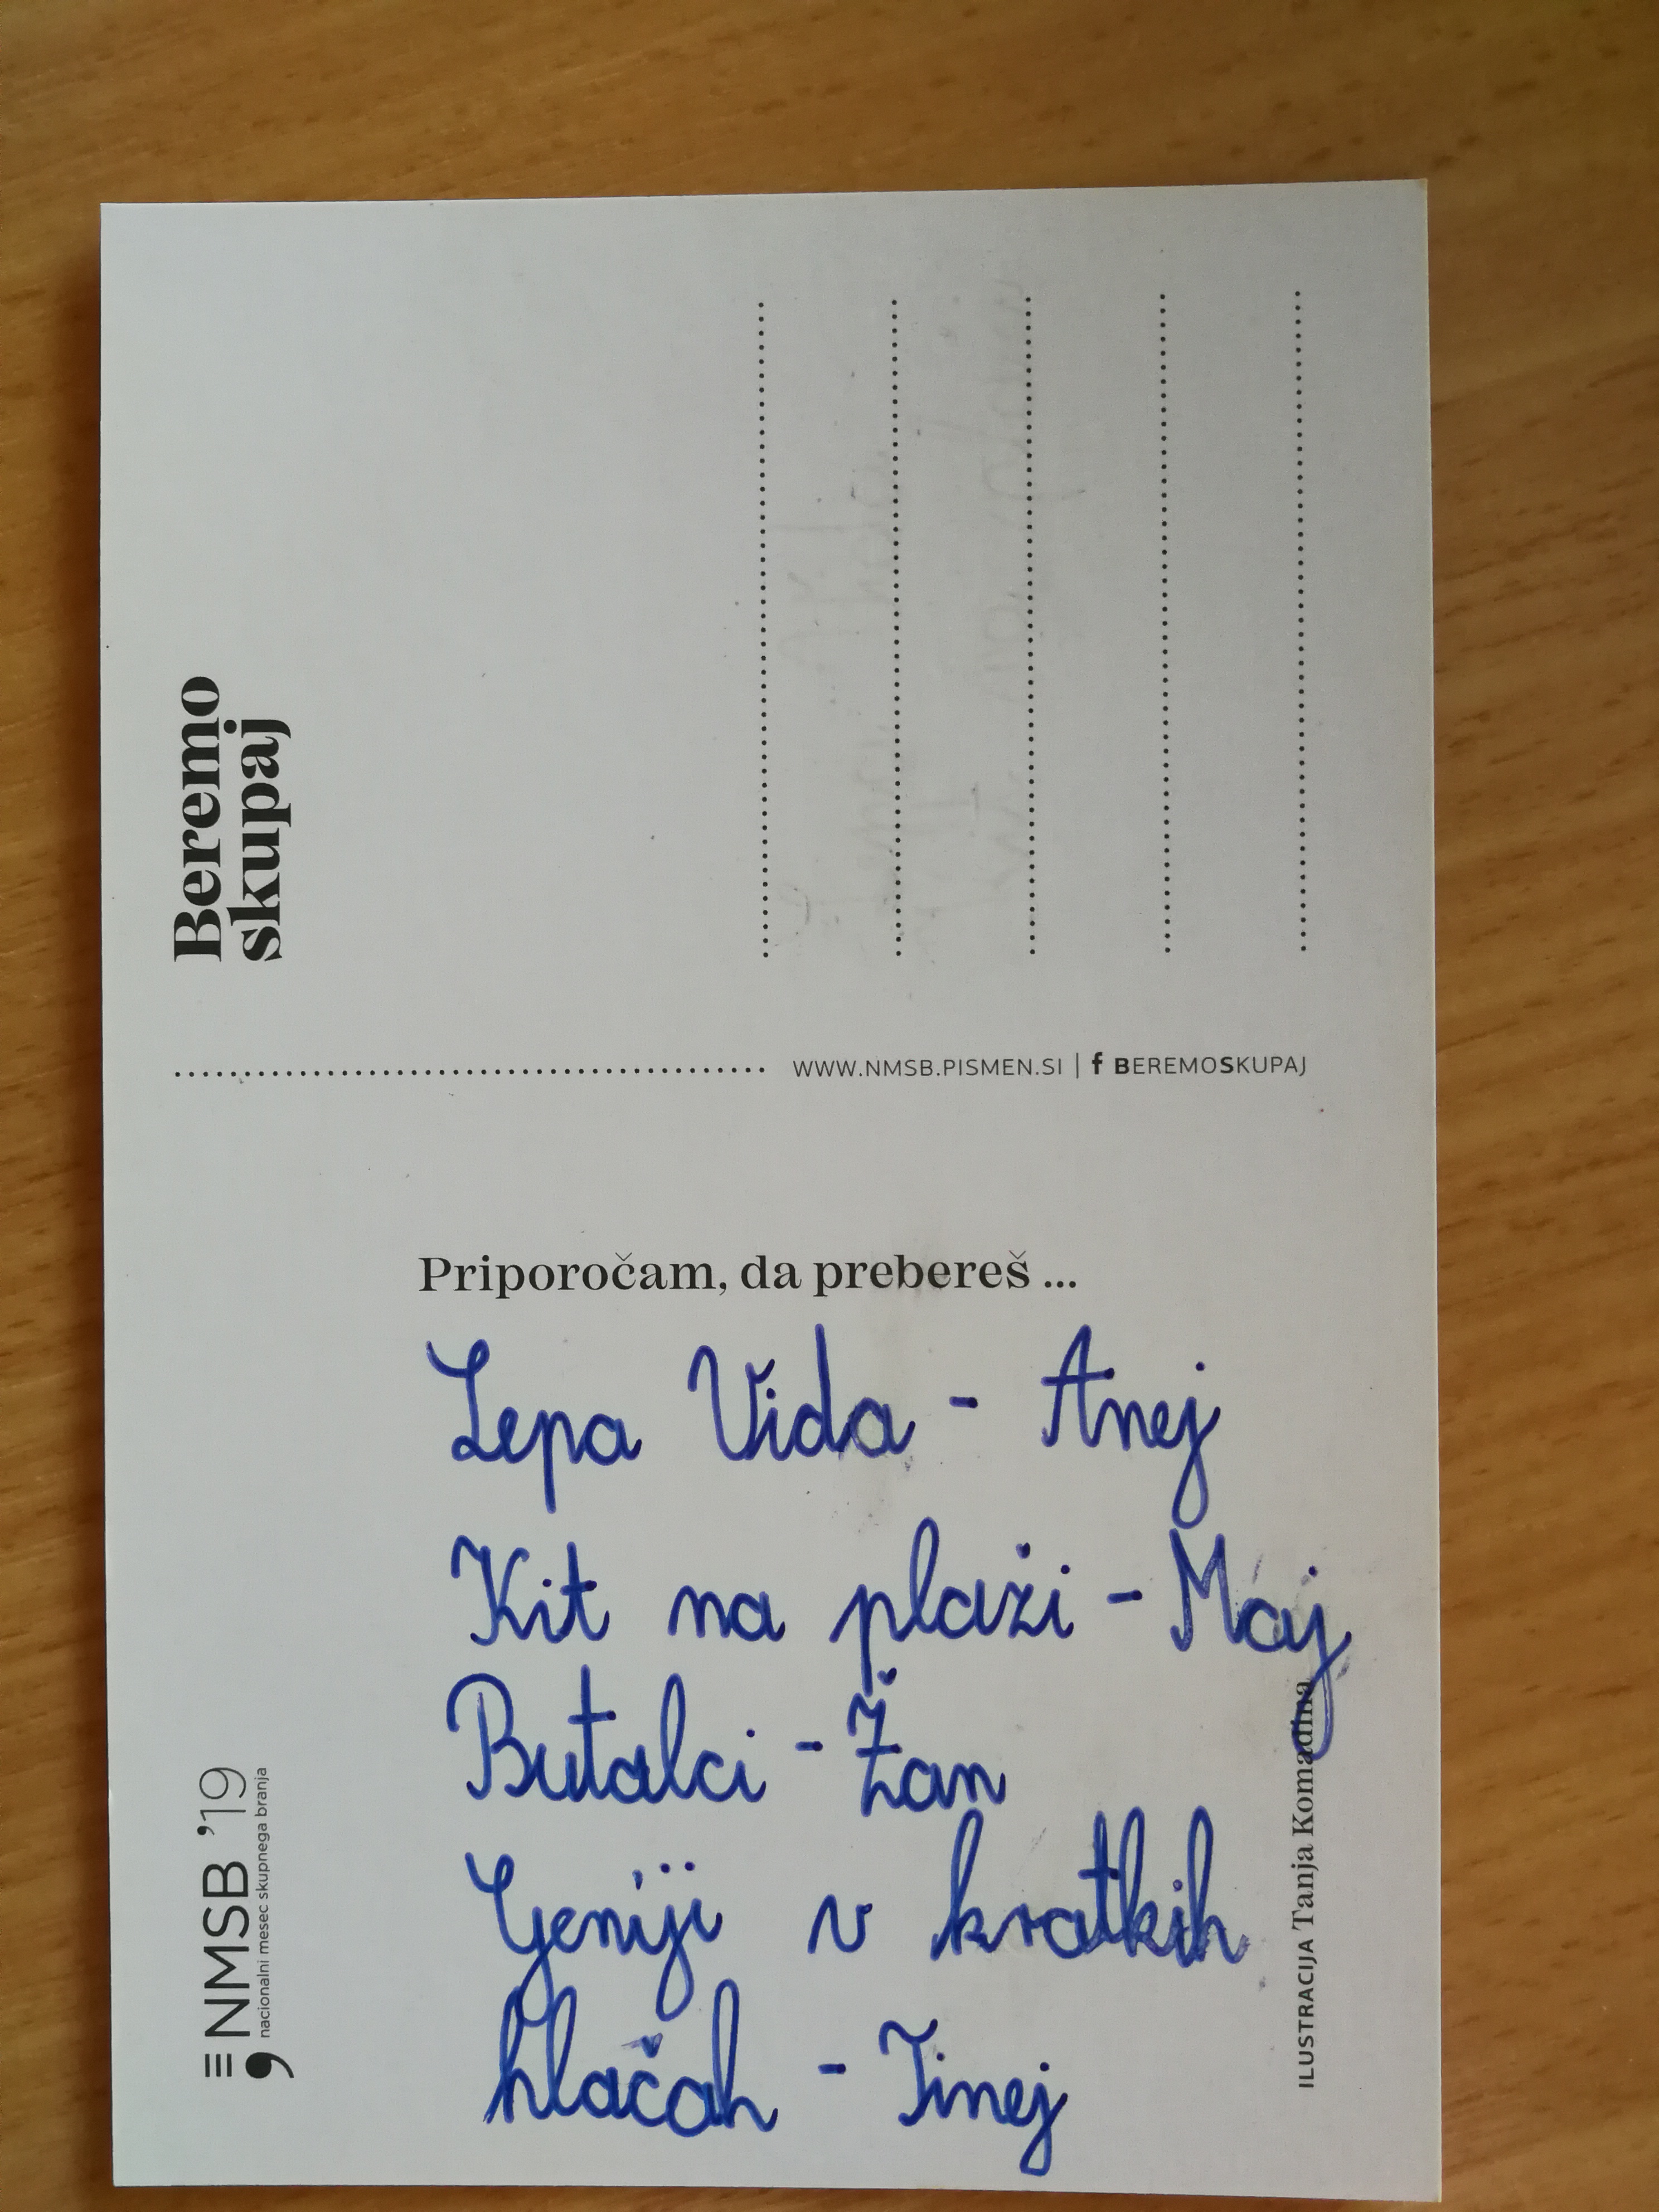 Beremo
skupaj
WWW.NMSB.PISMEN.SI | f BEREMOSKUPAJ
Priporočam, da prebereš ...
Lepa Vida - Anej
Kit na plaži - Maj
Butalci - Žan
Geniji v kratkih
hlačah - Tinej
NMSB '19
nacionalni mesec skupnega branja
ILUSTRACIJA Tanja Komadina